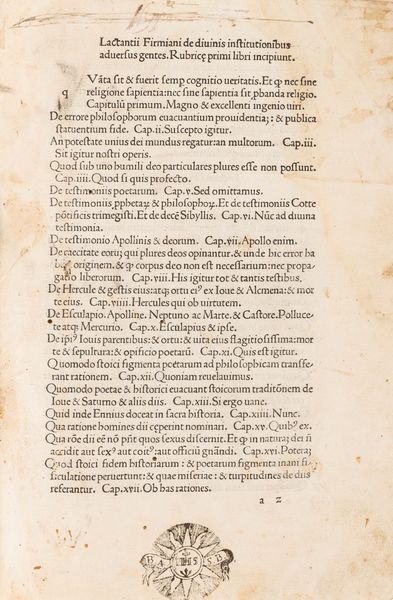 Lactantii Firmiani de diuinis institutionibus
aduersus gentes. Rubricę primi libri incipiunt.
q Vāta sit & fuerit semp cognitio ueritatis. Et ꝙ nec sine
religione sapientia: nec sine sapientia sit ꝓbanda religio.
Capitulū primum. Magno & excellenti ingenio uiri.
De errore philosophorum euacuantium prouidentiā: & publica
statuentium fide. Cap. ii. Suscepto igitur.
An potestate unius dei mundus regatur: an multorum. Cap. iii.
Sit igitur nostri operis.
Quod sub uno humili deo particulares plures esse non possunt.
Cap. iiii. Quod si quis profecto.
De testimoniis poetarum. Cap. v. Sed omittamus.
De testimoniis ꝓphetaꝝ & philosophoꝝ. Et de testimoniis Cotte
pōtificis trimegisti. Et de decē Sibyllis. Cap. vi. Nūc ad diuina
testimonia.
De testimonio Apollinis & deorum. Cap. vii. Apollo enim.
De caecitate eorū qui plures deos opinantur. & unde hic error ha
originem. & ꝙ corpus deo non est necessarium: nec propa
gatio liberorum. Cap. viii. His igitur tot & tantis testibus.
De Hercule & gestis eius: atqꝫ ortu eiꝰ ex Ioue & Alcmena: & mor
te eius. Cap. viiii. Hercules qui ob uirtutem.
De Esculapio. Apolline. Neptuno ac Marte. & Castore. Polluce
te atqꝫ Mercurio. Cap. x. Esculapius & ipse.
De ipiꝰ Iouis parentibus: & ortu: & uita eius flagitiosissima: mor
te & sepultura: & opificio poetarū. Cap. xi. Quis est igitur.
Quomodo stoici figmenta poetarum ad philosophicam transfe
rant rationem. Cap. xii. Quoniam reuelauimus.
Quomodo poetae & historici euacuant stoicorum traditōnem de
Ioue & Saturno & aliis diis. Cap. xiii. Si ergo uane.
Quid inde Ennius doceat in sacra historia. Cap. xiiii. Nunc.
Qua ratione homines dii ceperint nominari. Cap. xv. Quibꝰ ex.
Qua rōe dii eē nō pn̄t quos sexus discernit. Et ꝙ in naturā dei n̄
accidit aut sexꝰ aut coitꝰ: aut officiū gnāndi. Cap. xvi. Poterā
Quod stoici fidem historiarum: & poetarum figmenta inani fi
sculatione peruertunt: & quae miseriae: & turpitudines de diis
referantur. Cap. xvii. Ob has rationes.
a 2